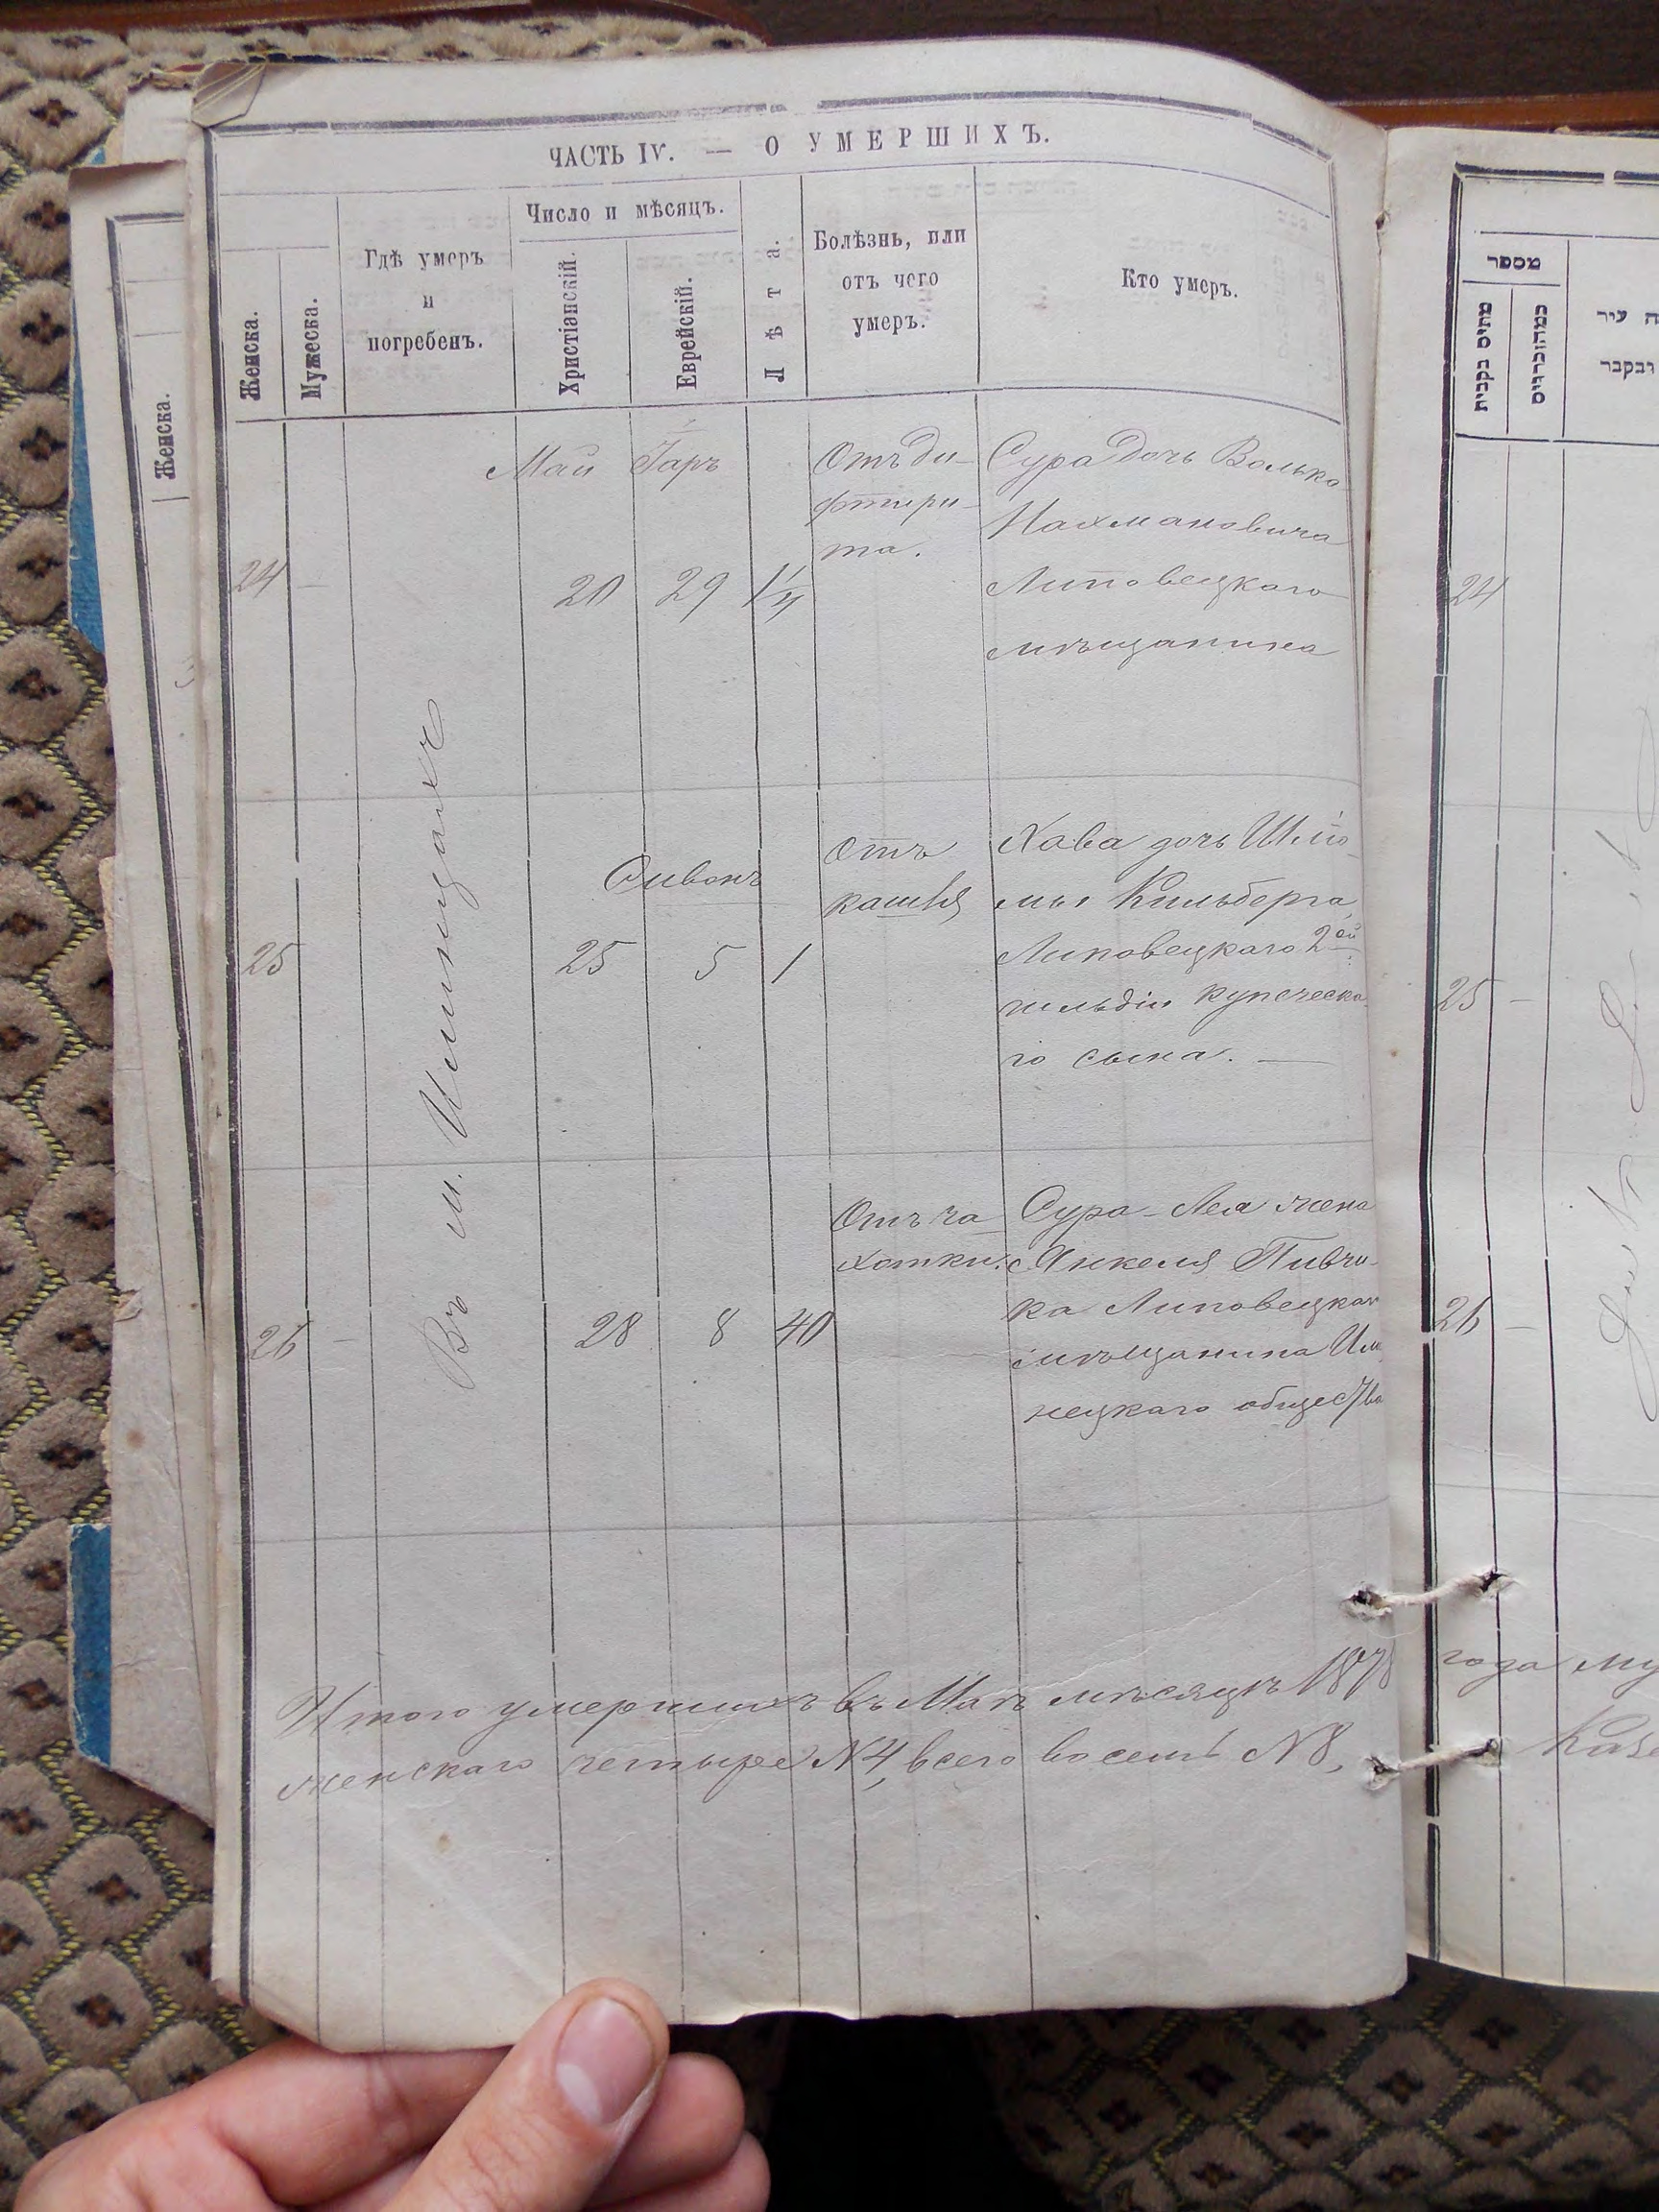 ЧАСТЬ IV. — О УМЕРШИХЪ.
Женска.
Мужеска.
Гдѣ умеръ
и
погребенъ.
Число и мѣсяцъ.
Христіанскій.
Еврейскій.
Лѣта.
Болѣзнь, или
отъ чего
умеръ.
Кто умеръ.
Май
Іаръ
24 —
20
29
1¼
Отъ ди-
фтири-
та.
Сура дочь Волько
Нахмановича
Липовецкаго
мѣщанина
Въ м. Ильинцахъ
Сиванъ
25
25
5
1
Отъ
кашля
Хава дочь Шліо-
мы Кильберга,
Липовецкаго 2ой
гильдіи купеческа
го сына. —
26 —
28
8
40
Отъ ча
хотки.
Сура-Лея жена
Янкеля Пивчи-
ка Липовецкаго
мѣщанина Или
нецкаго общества
Итого умершихъ въ Маѣ мѣсяцѣ 1878
женскаго четыре N 4, всего восемь N 8,
Женска.
מספר
מתים בקבית
כמהזכרים
עיר
ובקבר
24
25 —
26 —
года му
Казе